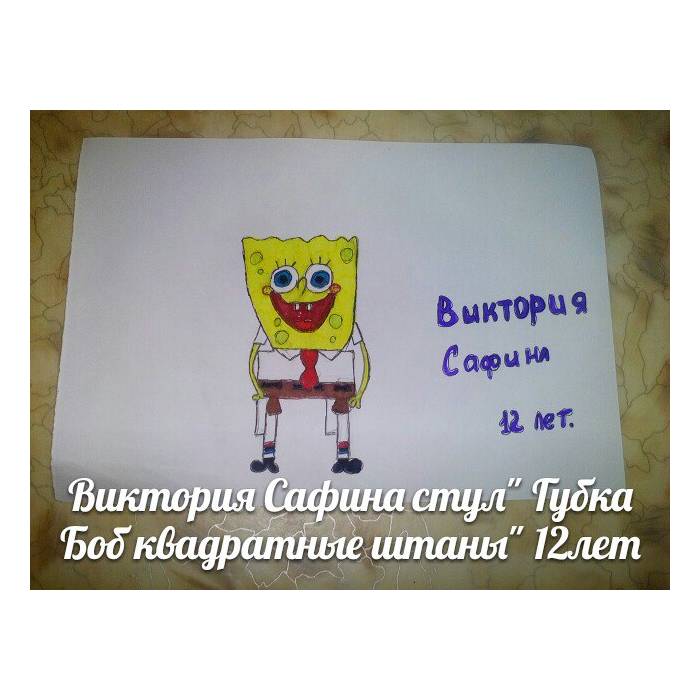 Виктория
Сафина
12 лет.
Виктория Сафина стул" Губка
Боб квадратные штаны" 12лет